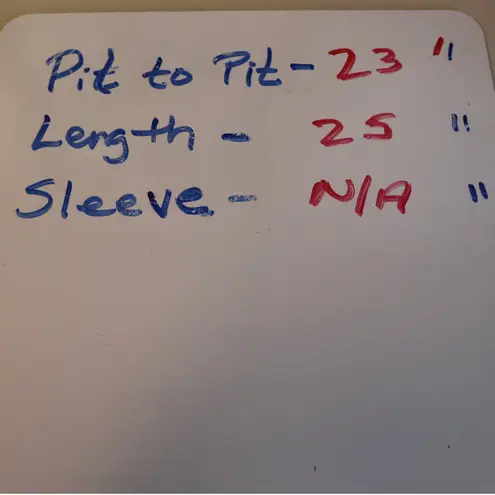 Pit to Pit - 23 "
Length - 25 "
Sleeve - N/A "